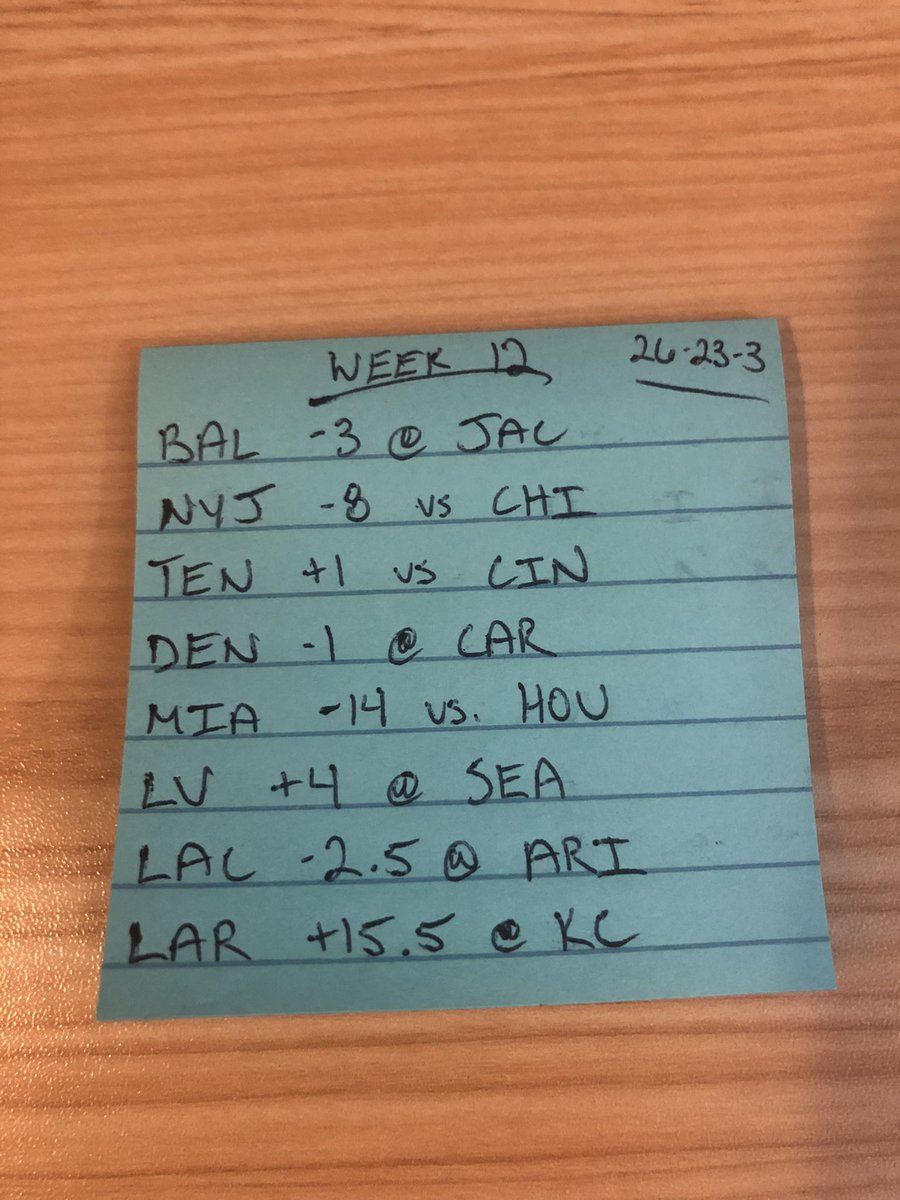 WEEK 12 26-23-3
BAL -3 @ JAC
NYJ -8 vs CHI
TEN +1 vs CIN
DEN -1 @ CAR
MIA -14 vs. HOU
LV +4 @ SEA
LAC -2.5 @ ARI
LAR +15.5 @ KC